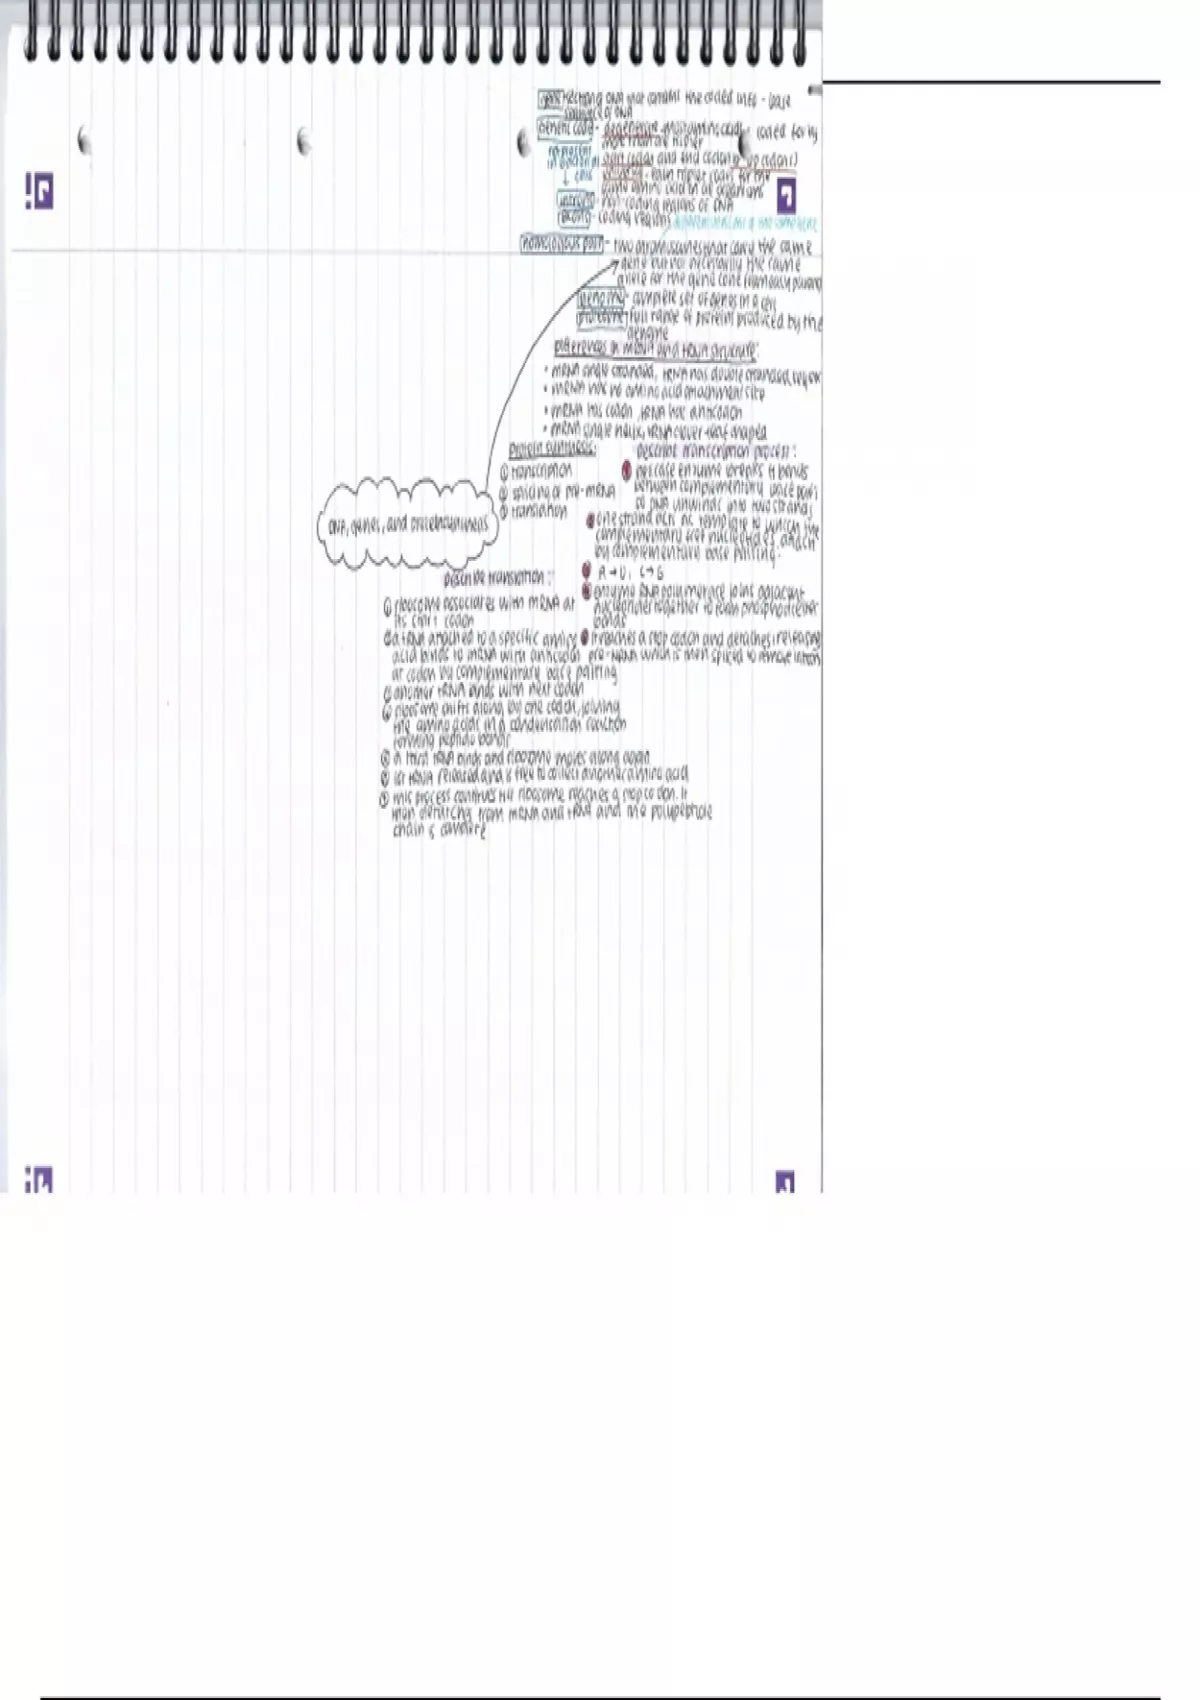 gene - section of DNA that contains the coded info - base
sequence of DNA
genetic code - degenerate - most amino acids coded for by
more than one triplet
not present
in bacterial
cells
start codon and end codon (stop codon)
universal - each triplet codes for the
same amino acid in all organisms
introns - non-coding regions of DNA
exons - coding regions
different versions of the same gene
homologous pair - two chromosomes that carry the same
gene but not necessarily the same
allele for the gene (one from each parent)
genome - complete set of genes in a cell
proteome - full range of proteins produced by the
genome
Differences in mRNA and tRNA structure:
• mRNA single stranded, tRNA has double stranded
• mRNA has no amino acid attachment site
• mRNA has codon, tRNA has anticodon
• mRNA single helix, tRNA clover-leaf shaped
protein synthesis:
① transcription
② splicing of pre-mRNA
③ translation
Describe transcription process:
between complementary base pairs
so DNA unwinds into two strands
one strand acts as template to which the
complementary nucleotides attach
by complementary base pairing.
A → U, C → G
enzyme RNA polymerase joins adjacent
nucleotides together to form phosphodiester
bonds
It reaches a stop codon and detaches, releasing
pre-mRNA which is then spliced to remove introns
DNA, genes, and protein synthesis
Describe translation:
① ribosome associates with mRNA at
its start codon
② a tRNA attached to a specific amino
acid binds to mRNA with anticodon
at codon by complementary base pairing
③ another tRNA binds with next codon
④ ribosome shifts along by one codon, joining
the amino acids in a condensation reaction
forming peptide bonds
⑤ A third tRNA binds and ribosome moves along again
⑥ 1st tRNA released and is free to collect another amino acid
⑦ this process continues till ribosome reaches a stop codon. It
then detaches from mRNA and tRNA and the polypeptide
chain is complete